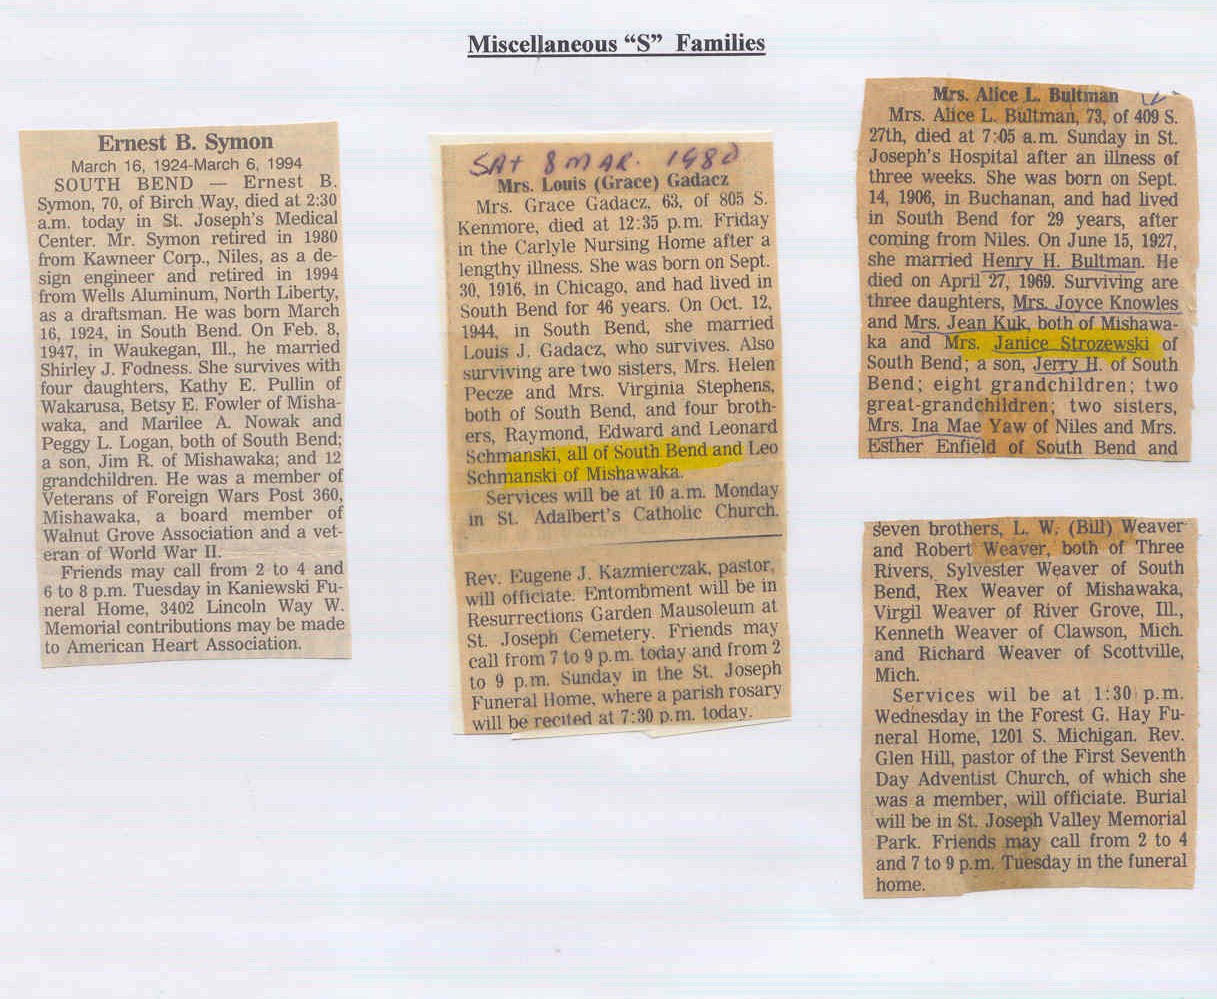 Miscellaneous “S” Families
Ernest B. Symon
March 16, 1924-March 6, 1994
SOUTH BEND — Ernest B.
Symon, 70, of Birch Way, died at 2:30
a.m. today in St. Joseph's Medical
Center. Mr. Symon retired in 1980
from Kawneer Corp., Niles, as a de-
sign engineer and retired in 1994
from Wells Aluminum, North Liberty,
as a draftsman. He was born March
16, 1924, in South Bend. On Feb. 8,
1947, in Waukegan, Ill., he married
Shirley J. Fodness. She survives with
four daughters, Kathy E. Pullin of
Wakarusa, Betsy E. Fowler of Misha-
waka, and Marilee A. Nowak and
Peggy L. Logan, both of South Bend;
a son, Jim R. of Mishawaka; and 12
grandchildren. He was a member of
Veterans of Foreign Wars Post 360,
Mishawaka, a board member of
Walnut Grove Association and a vet-
eran of World War II.
Friends may call from 2 to 4 and
6 to 8 p.m. Tuesday in Kaniewski Fu-
neral Home, 3402 Lincoln Way W.
Memorial contributions may be made
to American Heart Association.
SAT 8 MAR. 1980
Mrs. Louis (Grace) Gadacz
Mrs. Grace Gadacz, 63, of 805 S.
Kenmore, died at 12:35 p.m. Friday
in the Carlyle Nursing Home after a
lengthy illness. She was born on Sept.
30, 1916, in Chicago, and had lived in
South Bend for 46 years. On Oct. 12,
1944, in South Bend, she married
Louis J. Gadacz, who survives. Also
surviving are two sisters, Mrs. Helen
Pecze and Mrs. Virginia Stephens,
both of South Bend, and four broth-
ers, Raymond, Edward and Leonard
Schmanski, all of South Bend and Leo
Schmanski of Mishawaka.
Services will be at 10 a.m. Monday
in St. Adalbert's Catholic Church.
Rev. Eugene J. Kazmierczak, pastor,
will officiate. Entombment will be in
Resurrections Garden Mausoleum at
St. Joseph Cemetery. Friends may
call from 7 to 9 p.m. today and from 2
to 9 p.m. Sunday in the St. Joseph
Funeral Home, where a parish rosary
will be recited at 7:30 p.m. today.
Mrs. Alice L. Bultman
Mrs. Alice L. Bultman, 73, of 409 S.
27th, died at 7:05 a.m. Sunday in St.
Joseph's Hospital after an illness of
three weeks. She was born on Sept.
14, 1906, in Buchanan, and had lived
in South Bend for 29 years, after
coming from Niles. On June 15, 1927,
she married Henry H. Bultman. He
died on April 27, 1969. Surviving are
three daughters, Mrs. Joyce Knowles
and Mrs. Jean Kuk, both of Mishawa-
ka and Mrs. Janice Strozewski of
South Bend; a son, Jerry H. of South
Bend; eight grandchildren; two
great-grandchildren; two sisters,
Mrs. Ina Mae Yaw of Niles and Mrs.
Esther Enfield of South Bend and
seven brothers, L. W. (Bill) Weaver
and Robert Weaver, both of Three
Rivers, Sylvester Weaver of South
Bend, Rex Weaver of Mishawaka,
Virgil Weaver of River Grove, Ill.,
Kenneth Weaver of Clawson, Mich.
and Richard Weaver of Scottville,
Mich.
Services wil be at 1:30 p.m.
Wednesday in the Forest G. Hay Fu-
neral Home, 1201 S. Michigan. Rev.
Glen Hill, pastor of the First Seventh
Day Adventist Church, of which she
was a member, will officiate. Burial
will be in St. Joseph Valley Memorial
Park. Friends may call from 2 to 4
and 7 to 9 p.m. Tuesday in the funeral
home.